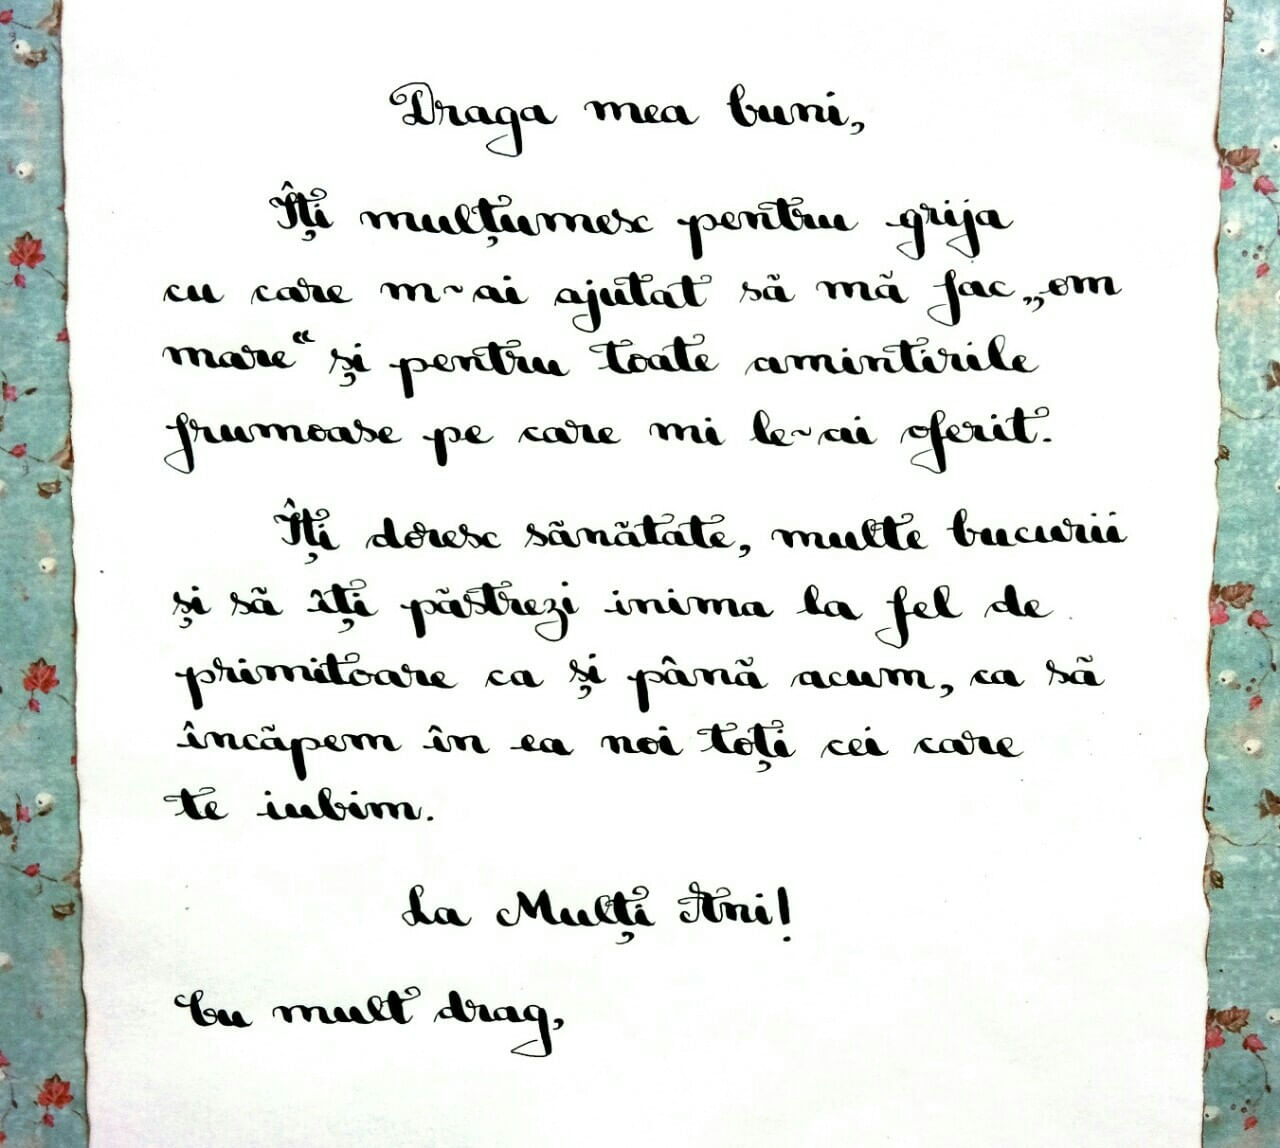 Draga mea buni,
Îți mulțumesc pentru grija
cu care m-ai ajutat să mă fac „om
mare“ și pentru toate amintirile
frumoase pe care mi le-ai oferit.
Îți doresc sănătate, multe bucurii
și să îți păstrezi inima la fel de
primitoare ca și până acum, ca să
încăpem în ea noi toți cei care
te iubim.
La Mulți Ani!
Cu mult drag,